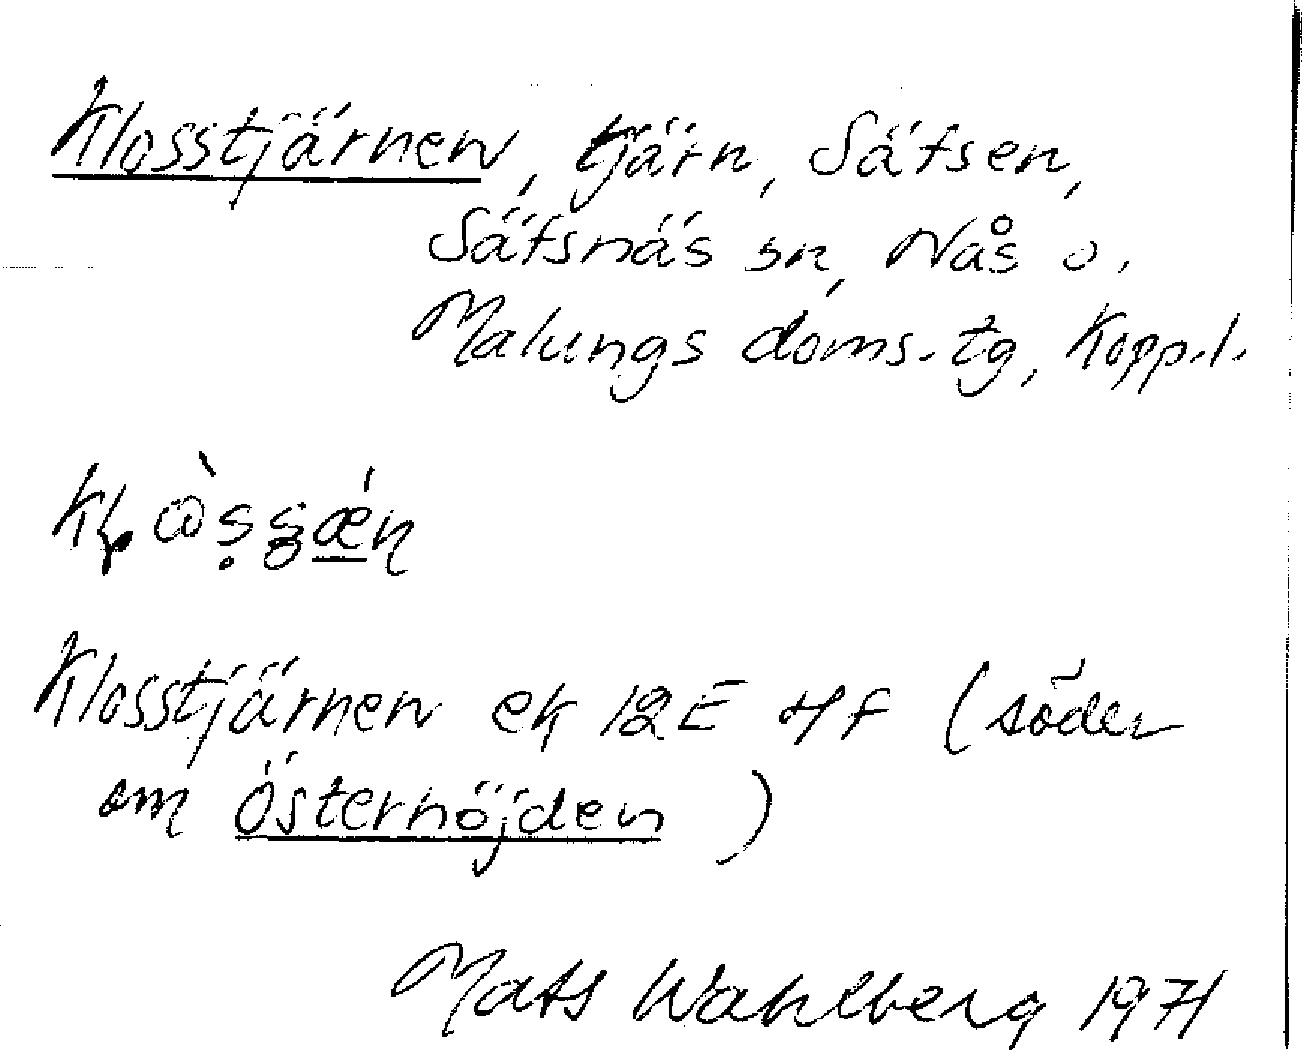 Klosstjärnen, tjärn, Säfsen,
Säfsnäs sn, Nås o.
Malungs doms. tg, Kopp.l.
Klosstjärnen ek 12E 4f (söder
om Österhöjden)
Mats Wahlberg 1971